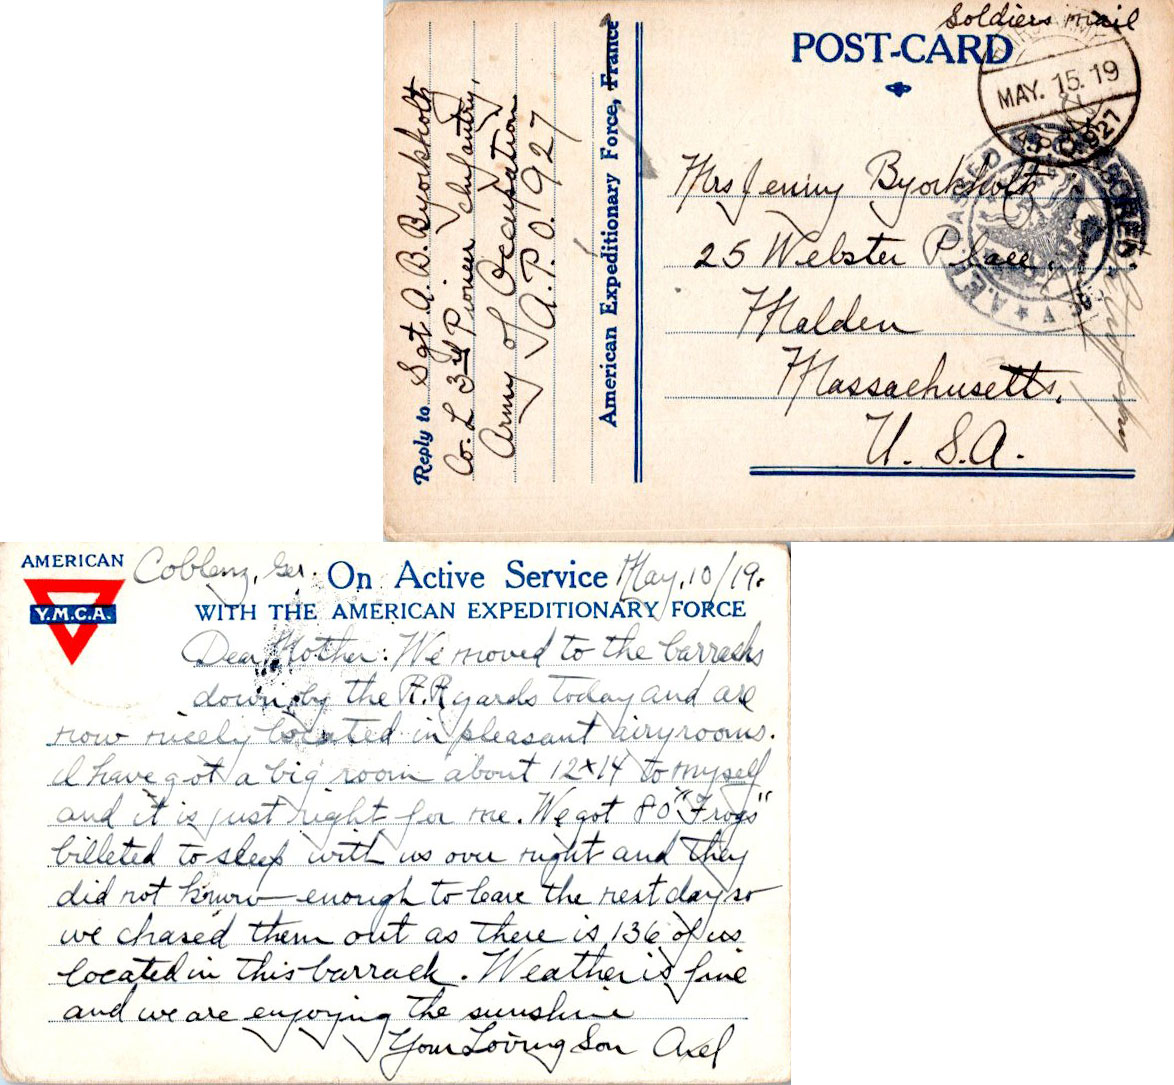 Soldiers mail
POST-CARD
MAY. 15. 19
927
A.E.F. PASSED
CENSORED
Mrs Jenny Byorkholt
25 Webster Place,
Malden
Massachusetts,
U. S. A.
Reply to Sgt. A. B. Byorkholt
Co. L 3rd Pioneer Infantry,
Army of Occupation
A. P. O. 927
American Expeditionary Force, France
AMERICAN
Y.M.C.A.
Coblenz, Ger. On Active Service May, 10/19.
WITH THE AMERICAN EXPEDITIONARY FORCE
Dear Mother: We moved to the barracks
down by the R.R yards today and are
now nicely located in pleasant airy rooms.
I have got a big room about 12x14 to myself
and it is just right for me. We got 80 "Frogs"
billeted to sleep with us over night and they
did not know enough to leave the next day so
we chased them out as there is 136 of us
located in this barrack. Weather is fine
and we are enjoying the sunshine
Your Loving Son Axel